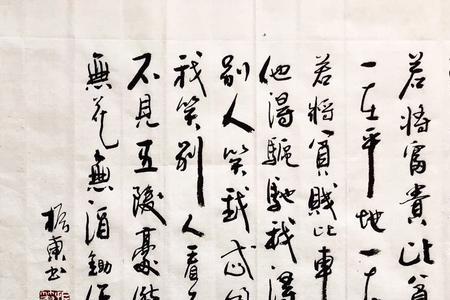 若將富貴比貧
一在平地一在
若將貧賤比車
他得驅馳我得
別人笑我忒
我笑別人看
不見五陵豪
無花無酒鋤作
東书